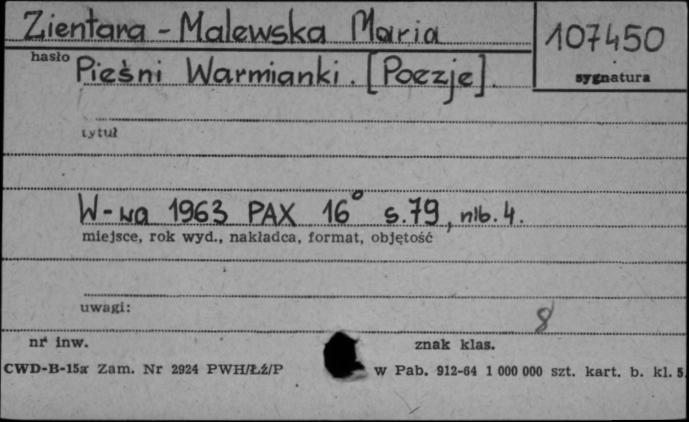 Zientara - Malewska Maria
107450
hasło
sygnatura
Pieśni Warmianki. [Poezje].
tytuł
W-wa 1963 PAX 16° s.79, nlb. 4.
miejsce, rok wyd., nakładca, format, objętość
uwagi:
8
nr inw.
znak klas.
CWD-B-15a Zam. Nr 2924 PWH/ŁŹ/P
w Pab. 912-64 1 000 000 szt. kart. b. kl. 5